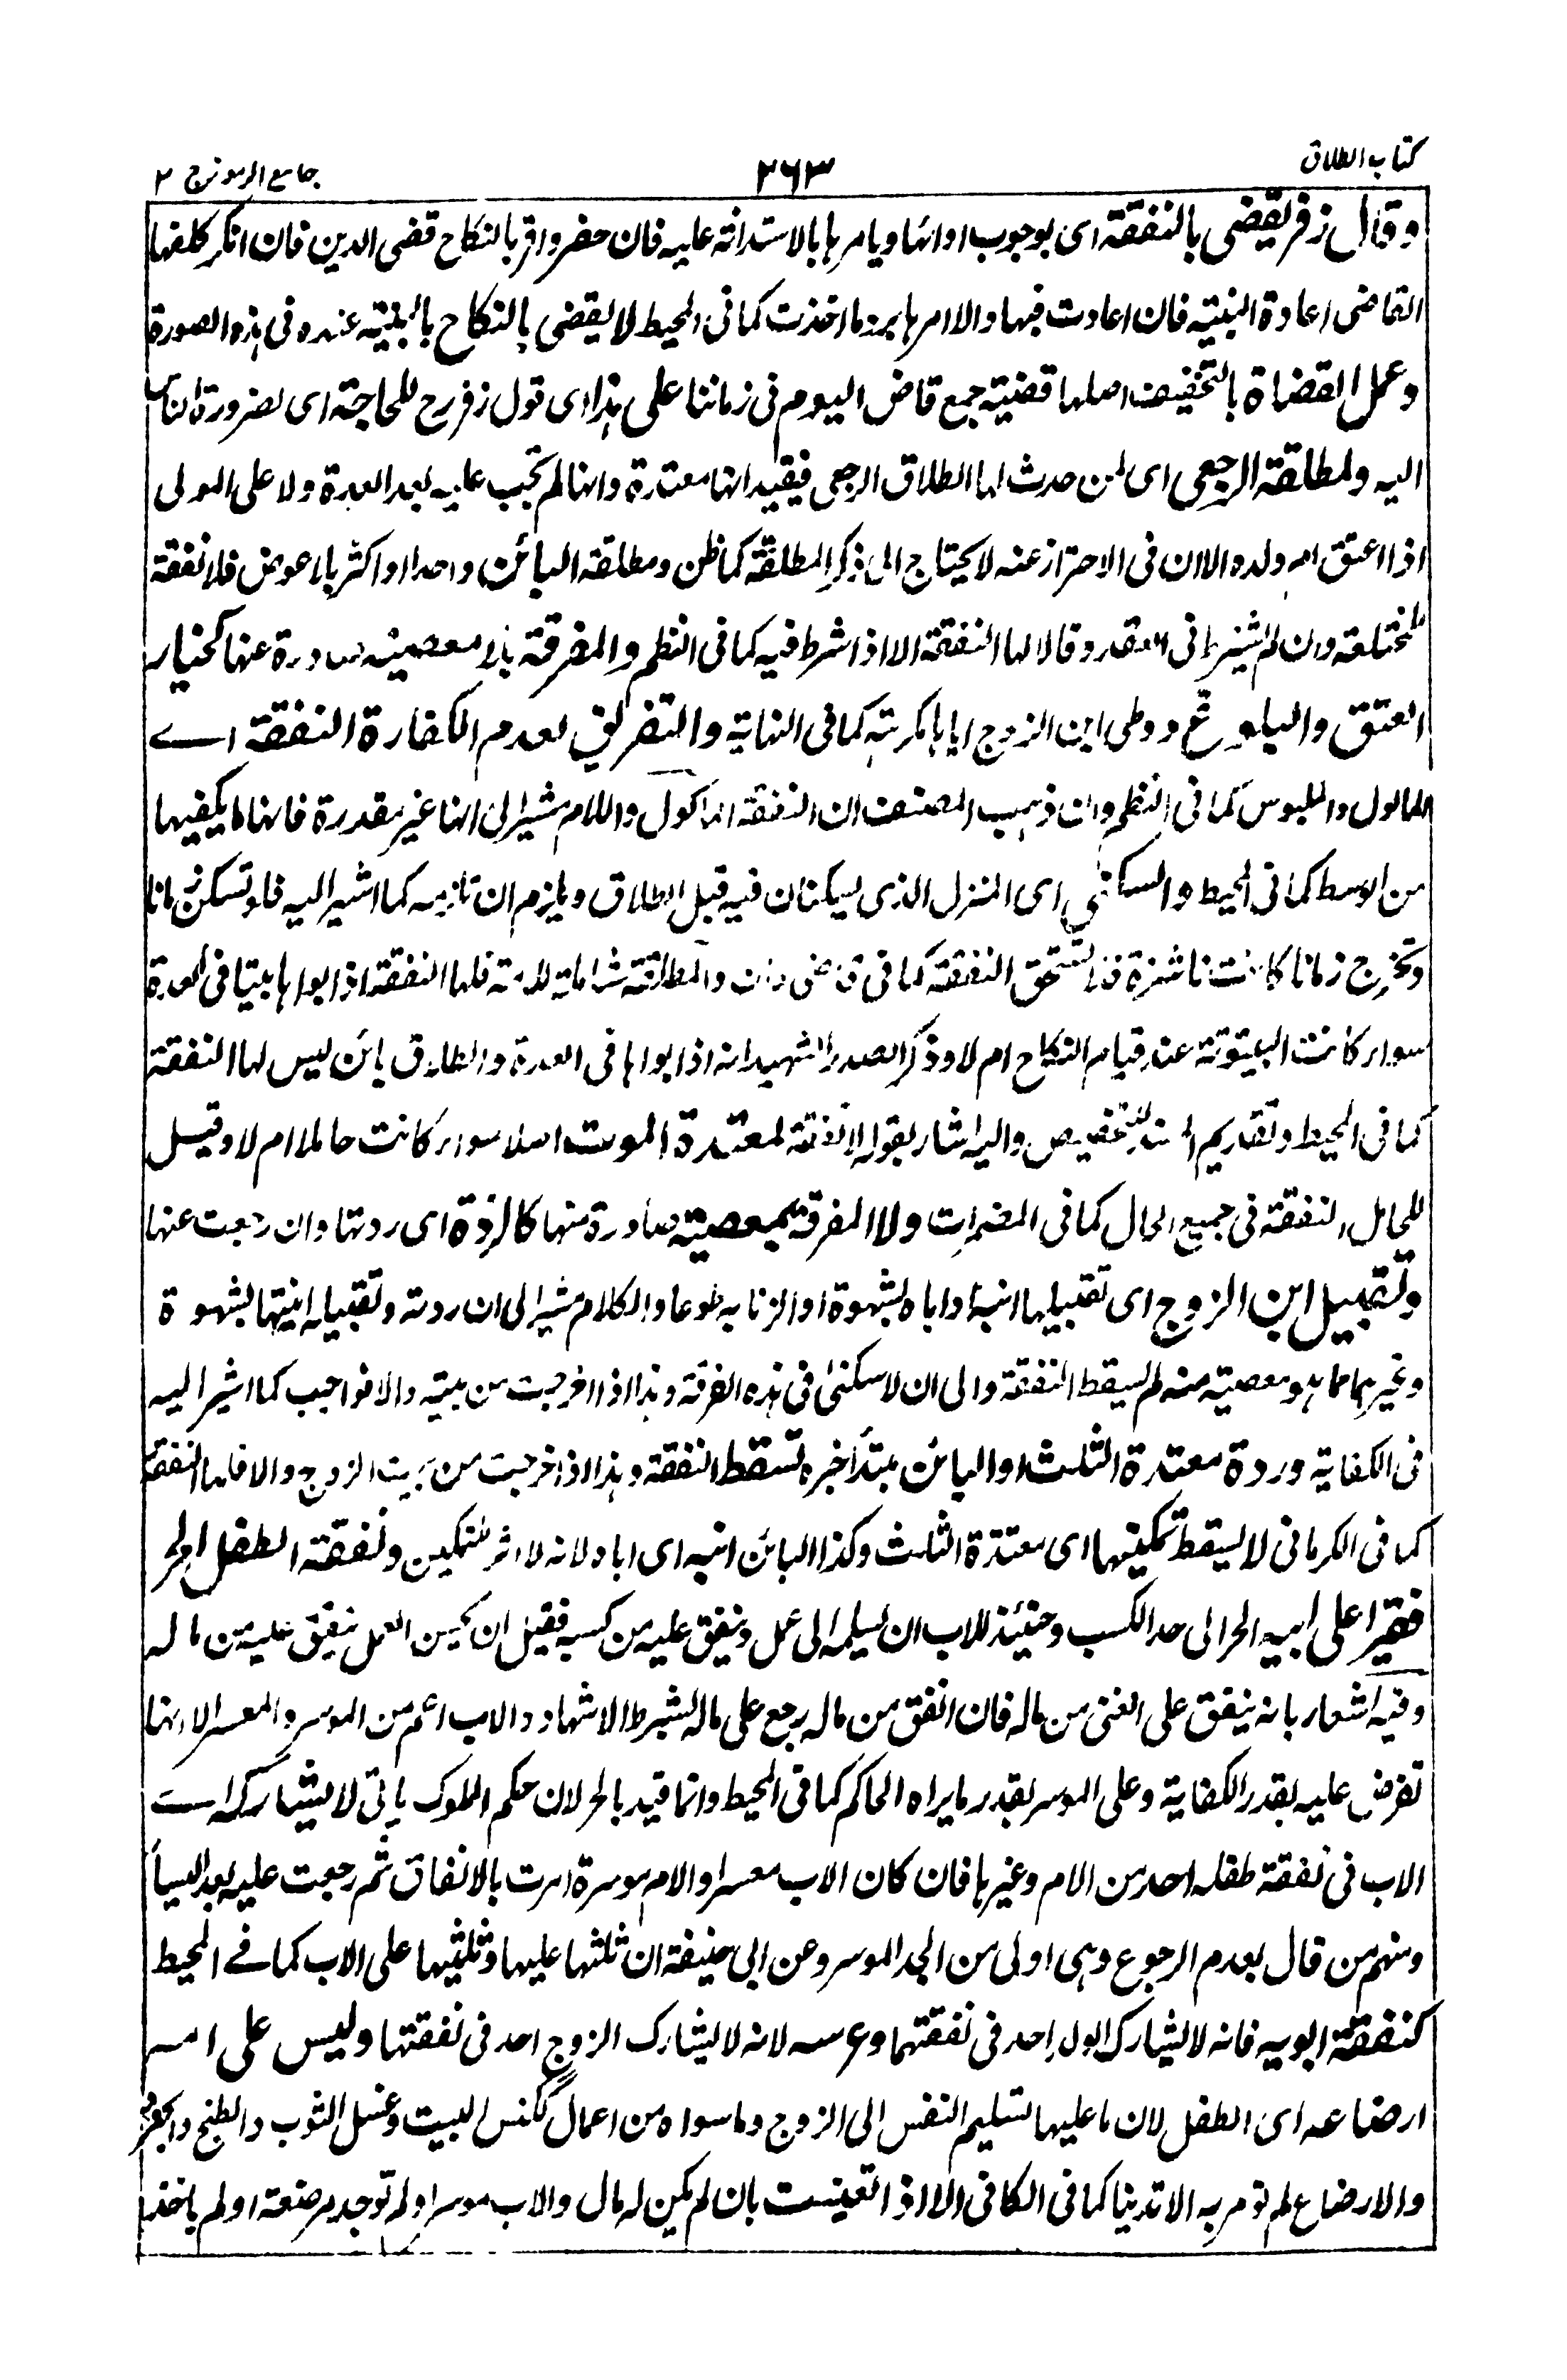 كتاب الطلاق
٣٦٣
جامع الرموز ج ٢
وقال زفر يقضى بالنفقة اى بوجوب ادائها ويامرها بالاستدانة عليه فان حضر واقر بالنكاح قضى الدين فان انكر كلفها
القاضى اعادة البينة فان اعادت فبها والا امرها برد ما اخذت كما فى المحيط لا يقضى بالنكاح بالبينة عنده فى هذه الصورة
وعمل القضاة بالتخفيف اصلها قضية جمع قاض اليوم فى زماننا على هذا اى قول زفر رح للحاجة اى لضرورة الناس
اليه ولمطلقة الرجعى اى لمن حدث لها الطلاق الرجعى فيفيد انها معتدة وانها لم تجب عليه بعد العدة ولا على المولى
اذا اعتق ام ولده الا ان فى الاحتراز عنه لا يحتاج الى ذكر المطلقة كما ظن ومطلقة البائن واحدا او اكثر بلا عوض فلا نفقة
للمختلعة وان لم يشترط فى العقد وقالا لها النفقة الا اذا شرط فيه كما فى النظم والمفرقة بلا معصية صادرة عنها كخيار
العتق والبلوغ ووطى ابن الزوج اياها مكرهة كما فى النهاية والتفريق لعدم الكفارة النفقة اى
الماكول والملبوس كما فى النظم وان ذهب المصنف ان النفقة الماكول واللام مشير الى انها غير مقدرة فانها ما يكفيها
من الوسط كما فى المحيط والسكنى اى المنزل الذى يسكنان فيه قبل الطلاق ويلزم ان تلزمه كما اشير اليه فلو تسكن زمانا
وتخرج زمانا كانت ناشزة فلا تستحق النفقة كما فى قاضى خان والمطلقة شاملة للامة فلها النفقة اذا بواها بيتا فى العدة
سواء كانت البيتوتة عند قيام النكاح ام لا وذكر الصدر الشهيد انه اذا بواها فى العدة والطلاق بائن ليس لها النفقة
كما فى المحيط وتقديم للتخصيص واليه اشار بقوله لا نفقة لمعتدة الموت اصلا سواء كانت حاملا ام لا وقيل
للحامل النفقة فى جميع المال كما فى المضمرات ولا المفرقة بمعصية صادرة منها كالردة اى ردتها وان رجعت عنها
وتقبيل ابن الزوج اى تقبيلها ابنه او اباه بشهوة او الزنا به طوعا والكلام مشير الى ان ردته وتقبيله ابنتها بشهوة
وغيرهما مما هو معصية منه لم يسقط النفقة والى ان لا سكنى فى هذه الفرقة وهذا اذا اخرجت من بيته والا فواجب كما اشير اليه
فى الكفاية وردة معتدة الثلث او البائن مبتدأ خبره تسقط النفقة وهذا اذا خرجت من بيت الزوج والا فلها النفقة
كما فى الكرمانى لا يسقط تمكينها اى معتدة الثلث وكذا البائن ابنه اى اباه لانه لا اثر للتمكين ونفقة الطفل الحر
فقيرا على ابيه الحر الى حد الكسب وحينئذ للاب ان يسلمه الى عمل وينفق عليه من كسبه فقيل ان يحسن العمل ينفق عليه من ماله
وفيه اشعار بانه ينفق على الغنى من ماله فان انفق من ماله رجع على ماله بشرط الاشهاد والاب اعم من الموسر والمعسر الا انها
تفرض عليه بقدر الكفاية وعلى الموسر بقدر ما يراه الحاكم كما فى المحيط وانما قيد بالحر لان حكم المملوك ياتى لا يشاركه اى
الاب فى نفقة طفله احد من الام وغيرها فان كان الاب معسرا والام موسرة امرت بالانفاق ثم رجعت عليه بعد اليسار
ومنهم من قال بعدم الرجوع وهى اولى من الجد الموسر وعن ابى حنيفة ان ثلثها عليها وثلثيها على الاب كما فى المحيط
كنفقة ابويه فانه لا يشارك الولد احد فى نفقتهما وعرسه لانه لا يشارك الزوج احد فى نفقتها وليس على امه
ارضاعه اى الطفل لان ما عليها تسليم النفس الى الزوج وما سواه من اعمال ككنس البيت وغسل الثوب والطبخ والخبز
والارضاع لم تومر به الا تدينا كما فى الكافى الا اذا تعينت بان لم يكن له مال والاب موسرا ولم توجد مرضعة او لم ياخذ